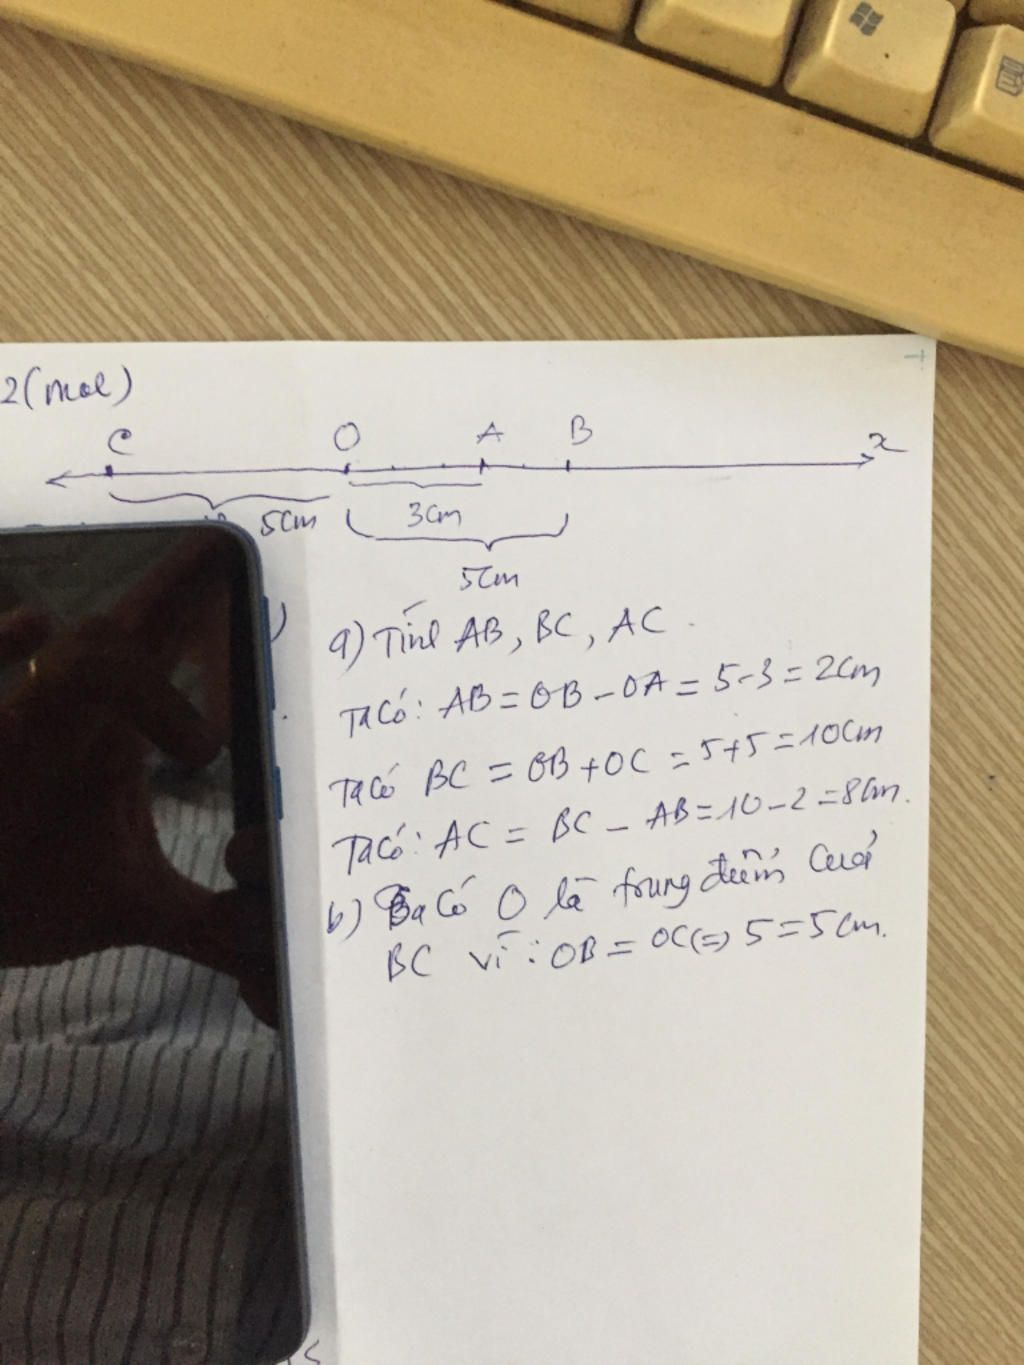 2(mol)
C O A B x
5cm 3cm
5cm
a) Tính AB, BC, AC.
Ta có: AB = OB - OA = 5-3 = 2cm
Ta có BC = OB + OC = 5+5 = 10cm
Ta có: AC = BC - AB = 10-2 = 8cm.
b) Ta có O là trung điểm của
BC vì: OB = OC (=) 5 = 5cm.